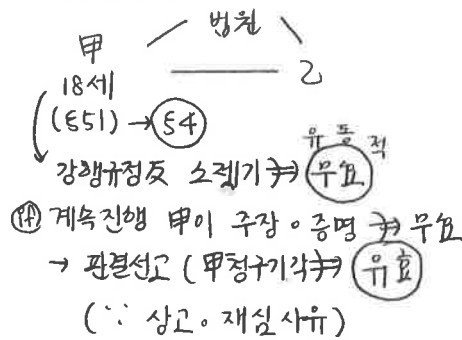 법원
甲
乙
18세
(§51) → §4
유동적
강행규정反 소제기 ⇒ 무효
if 계속진행 甲이 주장。증명 ⇒ 무효
→ 판결선고 (甲청구기각 ⇒ 유효
(∵ 상고。재심사유)